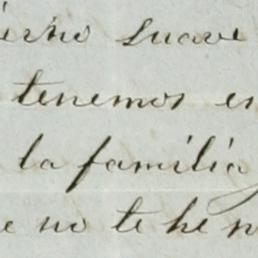 suave
tenemos en
la familia
e no te he